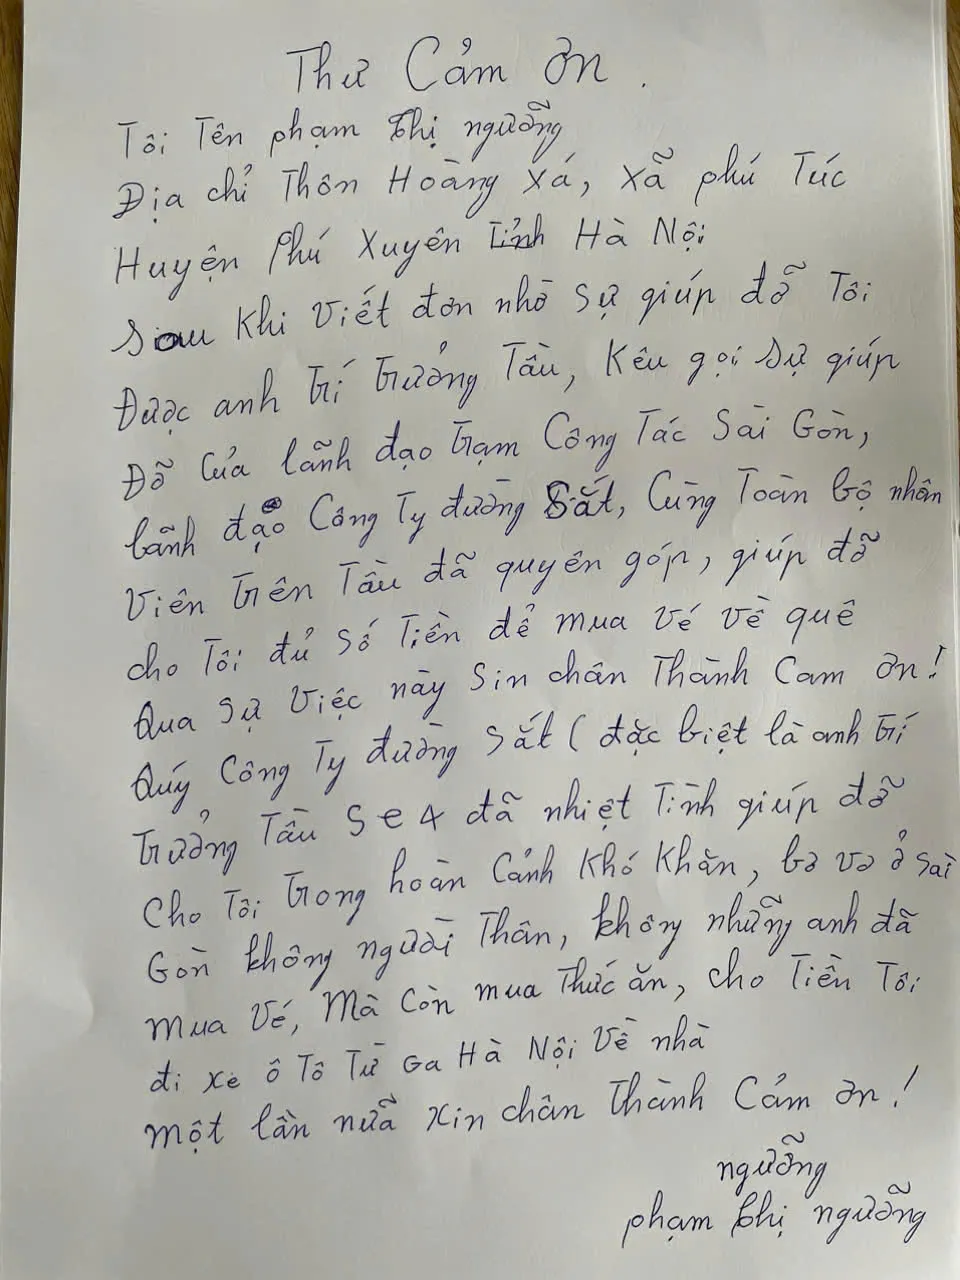 Thư Cảm ơn.
Tôi Tên phạm thị ngưỡng
Địa chỉ Thôn Hoàng Xá, xã phú Túc
Huyện Phú Xuyên Tỉnh Hà Nội
Sau khi viết đơn nhờ sự giúp đỡ Tôi
Được anh trí trưởng Tàu, Kêu gọi sự giúp
Đỡ Của lãnh đạo trạm Công Tác Sài Gòn,
lãnh đạo Công Ty đường Sắt, Cùng Toàn bộ nhân
viên trên Tàu đã quyên góp, giúp đỡ
cho Tôi đủ số Tiền để mua vé về quê
Qua sự việc này sin chân Thành Cam ơn!
Quý Công Ty đường sắt ( đặc biệt là anh trí
trưởng Tàu Se4 đã nhiệt Tình giúp đỡ
Cho Tôi trong hoàn Cảnh Khó Khăn, bơ vơ ở Sài
Gòn không người Thân, không những anh đã
mua vé, Mà Còn mua Thức ăn, cho Tiền Tôi
đi xe ô Tô Từ Ga Hà Nội Về nhà
một lần nữa Xin chân Thành Cảm ơn!
ngưỡng
phạm thị ngưỡng